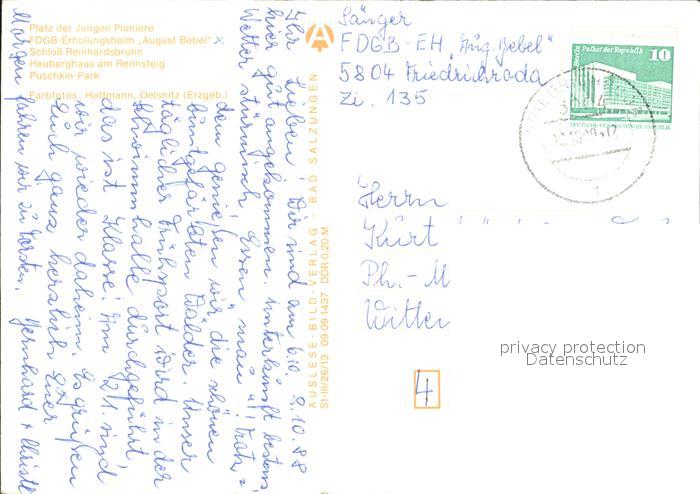 Platz der Jungen Pioniere
FDGB-Erholungsheim „August Bebel" x
Schloß Reinhardsbrunn
Heuberghaus am Rennsteig
Puschkin-Park
Farbfotos: Hoffmann, Oelsnitz (Erzgeb.)
8.10.88
Ihr Lieben! Wir sind am 6.10.
hier gut angekommen. Unterkunft bestens
Wetter stürmisch Essen
dem genießen wir die schönen
buntgefärbten Wälder. Unser
täglicher Frühsport wird in der
Schwimmhalle durchgeführt
das ist Klasse! Am 21. sind
wir wieder daheim. Es grüßen
Euch ganz herzlich Euer
Gernhard + Christl
Morgen fahren wir zu Torsten.
AUSLESE-BILD-VERLAG · BAD SALZUNGEN
St-III/26/13 09 09 1437 DDR 0,20 M
Sänger
FDGB-EH „Aug. Bebel"
5804 Friedrichroda
Zi. 135
Berlin Palast der Republik
10
DEUTSCHE DEMOKRATISCHE REPUBLIK
Herrn
Kurt
Ph.-M
Witter
4
privacy protection
Datenschutz